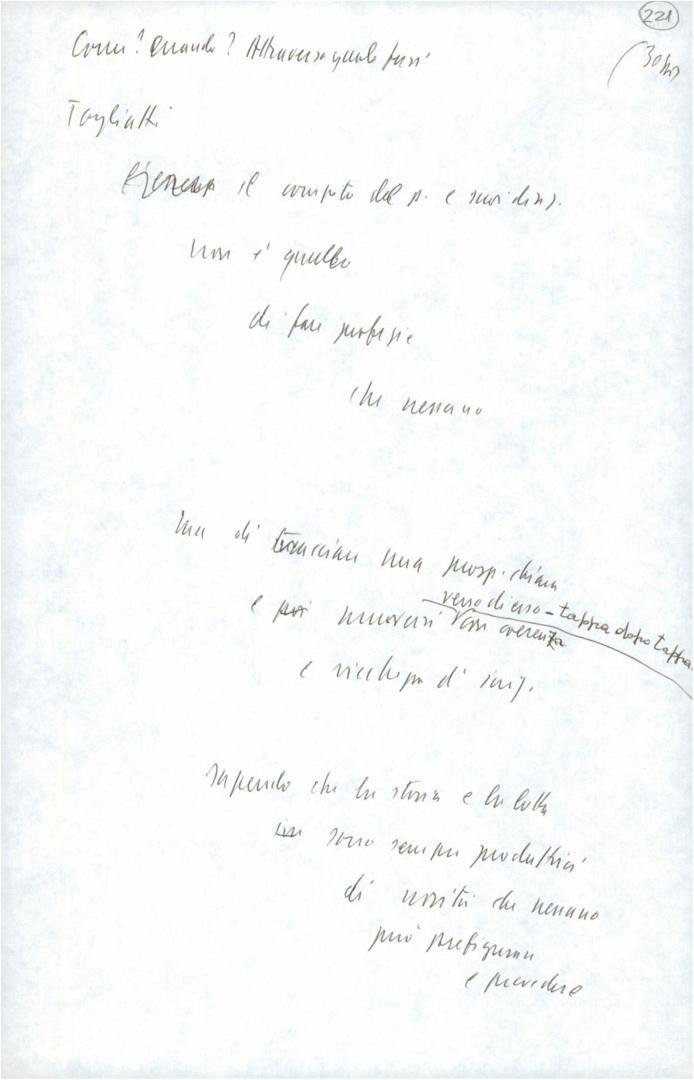 221
Come? Quando? Attraverso quale fasi
(30 bis
Togliatti
il compito del p. e suoi dir.
non è quello
di fare profezie
che nessuno
ma di tracciare una prosp. chiara
verso di essa - tappa dopo tappa
e poi muoversi con coerenza
e ricchezza di iniz.
sapendo che la storia e la lotta
sono sempre produttrici
di novità che nessuno
può prefigurare
e prevedere